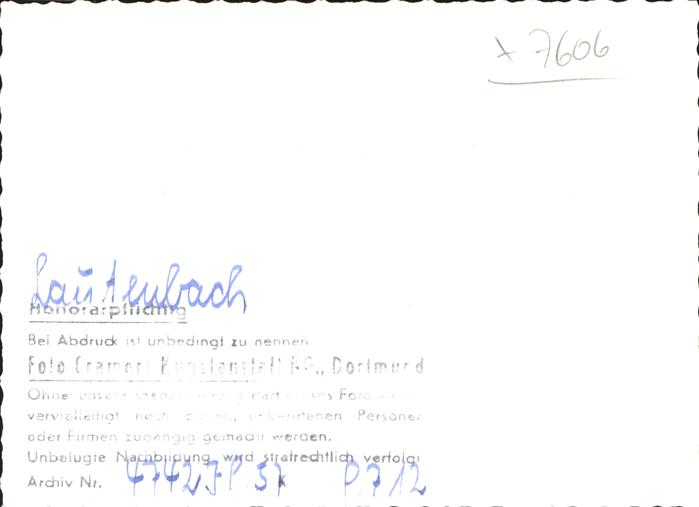 7606
Lautenbach
Honorarpflichtig
Bei Abdruck ist unbedingt zu nennen
Foto Cramers Kunstanstalt KG., Dortmund
Ohne unsere Genehmigung darf dieses Foto weder
vervielfältigt noch dritten, unberufenen Personen
oder Firmen zugängig gemacht werden.
Unbefugte Nachbildung wird strafrechtlich verfolgt
Archiv Nr.